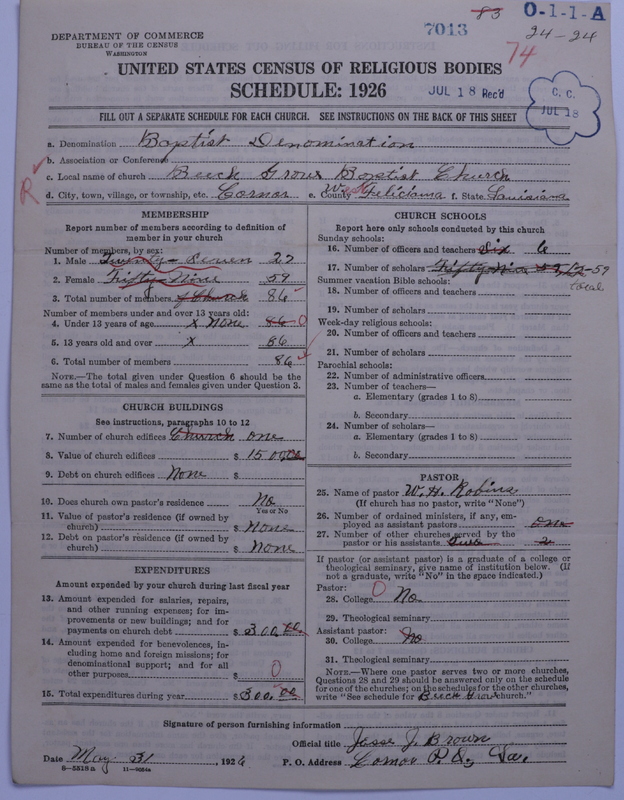 83 O-1-1-A
7013 24-24
74
DEPARTMENT OF COMMERCE
BUREAU OF THE CENSUS
WASHINGTON
UNITED STATES CENSUS OF RELIGIOUS BODIES
SCHEDULE: 1926
JUL 18 Rec'd
C. C.
JUL 18
FILL OUT A SEPARATE SCHEDULE FOR EACH CHURCH. SEE INSTRUCTIONS ON THE BACK OF THIS SHEET
a. Denomination Baptist Denomination
b. Association or Conference
c. Local name of church Beech Grove Baptist Church
R
d. City, town, village, or township, etc. Comor e. County West Feliciana f. State Louisiana
MEMBERSHIP
Report number of members according to definition of
member in your church
Number of members, by sex:
1. Male Twenty-Seven 27
2. Female Fifty-Nine 59
3. Total number of members of Church 86
Number of members under and over 13 years old:
4. Under 13 years of age x None 86 0
5. 13 years old and over x 86
6. Total number of members 86
NOTE.—The total given under Question 6 should be the
same as the total of males and females given under Question 3.
CHURCH BUILDINGS
See instructions, paragraphs 10 to 12
7. Number of church edifices Church one
8. Value of church edifices $ 1500.00
9. Debt on church edifices None $
10. Does church own pastor's residence No
Yes or No
11. Value of pastor's residence (if owned by
church) $ None
12. Debt on pastor's residence (if owned by
church) $ None
EXPENDITURES
Amount expended by your church during last fiscal year
13. Amount expended for salaries, repairs,
and other running expenses; for im-
provements or new buildings; and for
payments on church debt $ 300.00
14. Amount expended for benevolences, in-
cluding home and foreign missions; for
denominational support; and for all
other purposes $ 0
15. Total expenditures during year $ 300.00
CHURCH SCHOOLS
Report here only schools conducted by this church
Sunday schools:
16. Number of officers and teachers Six 6
17. Number of scholars Fifty Nine 59
total
Summer vacation Bible schools:
18. Number of officers and teachers
19. Number of scholars
Week-day religious schools:
20. Number of officers and teachers
21. Number of scholars
Parochial schools:
22. Number of administrative officers
23. Number of teachers—
a. Elementary (grades 1 to 8)
b. Secondary
24. Number of scholars—
a. Elementary (grades 1 to 8)
b. Secondary
PASTOR
25. Name of pastor W. H. Robins
(If church has no pastor, write "None")
26. Number of ordained ministers, if any, em-
ployed as assistant pastors one
27. Number of other churches served by the
pastor or his assistants 2
If pastor (or assistant pastor) is a graduate of a college or
theological seminary, give name of institution below. (If
not a graduate, write "No" in the space indicated.)
Pastor:
28. College 0 No
29. Theological seminary
Assistant pastor:
30. College No
31. Theological seminary
NOTE.—Where one pastor serves two or more churches,
Questions 28 and 29 should be answered only on the schedule
for one of the churches; on the schedules for the other churches,
write "See schedule for Beech Grove church."
Signature of person furnishing information
Official title Jesse J. Brown
Date May 31, 1926 P. O. Address Comor P.O., La.
8—5518 a 11—9054a